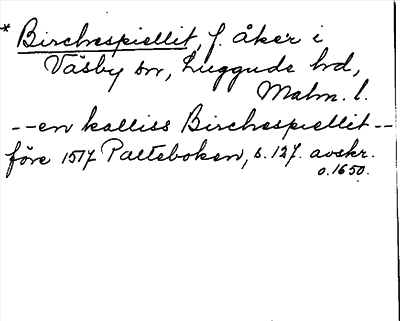 * Birchespiellit, f. åker i
Väsby sn, Luggude hd,
Malm. l.
--en kalliss Birchespiellit--
före 1517 Palteboken, s. 127. avskr.
o. 1650.